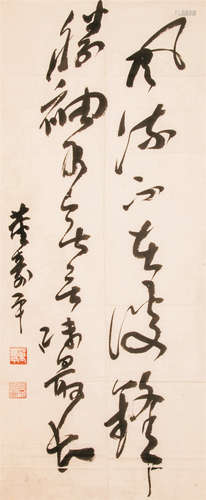 風流不在談鋒
勝袖手無言味最長
董壽平